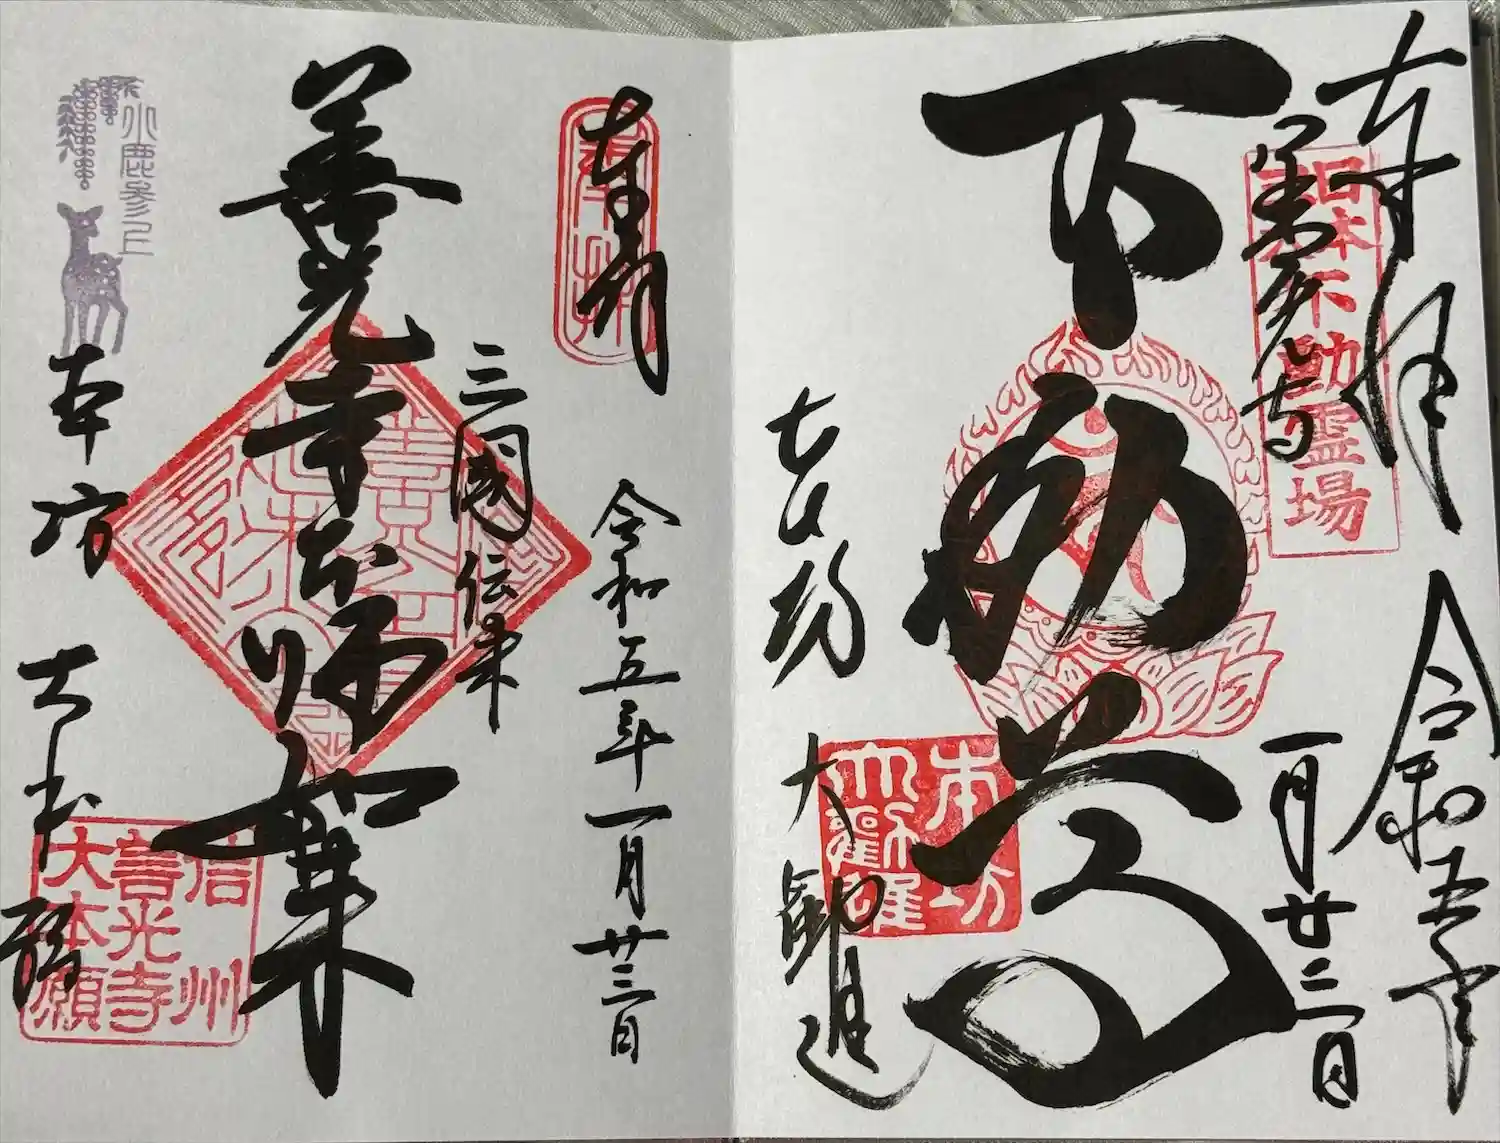 奉拝
善光寺
日本不動霊場
令和五年
一月廿三日
不動尊
本坊
大勧進
本坊
大勧進
奉拝
奉拝
令和五年一月廿三日
三國伝来
善光寺本師如来
小鹿参上
本坊
大本願
信州
善光寺
大本願